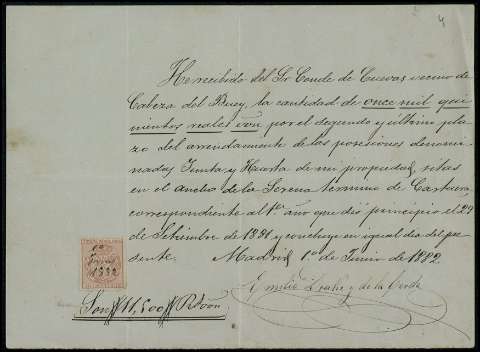 4
He recibido del Sr Conde de Cuevas vecino de
Cabeza del Buey, la cantidad de once mil qui
nientos reales von por el segundo y último pla
zo del arrendamiento de las posesiones denomi
nadas Junta y Huerta de mi propiedad, sitas
en el ancho de la Serena término de Castuera,
correspondiente al 1er año que dió principio el 29
de Setiembre de 1881 y concluye en igual dia del pre
sente. Madrid 1º de Junio de 1882.
Emilio y de la Cerda
1º
Junio
1882
Son 11,500 Rs von